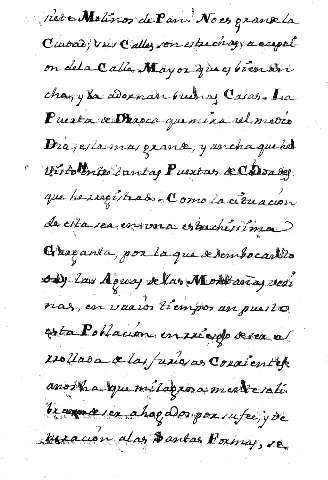 siete Molinos de Pan. No es grande la
Ciudad; sus Calles son estrechas, a ecepci
on de la Calle Mayor que es bien an
cha, y la adornan buenas Casas. La
Puerta de Daroca que mira al medio
Dia, es la mas grande, y ancha que he
visto entre tantas Puertas de Ciudades
que he registrado. Como la cituación
de esta sea en una estrechissima
Garganta, por la que desembocan
las Aguas de las Montañas veci
nas, en varios tiempos an puesto
esta Población en riesgo de ser a
rrollada de las furiosas Corrientes
que milagrosamente se li
ser ahogados por su fee, y de
voración a las Santas Formas, se